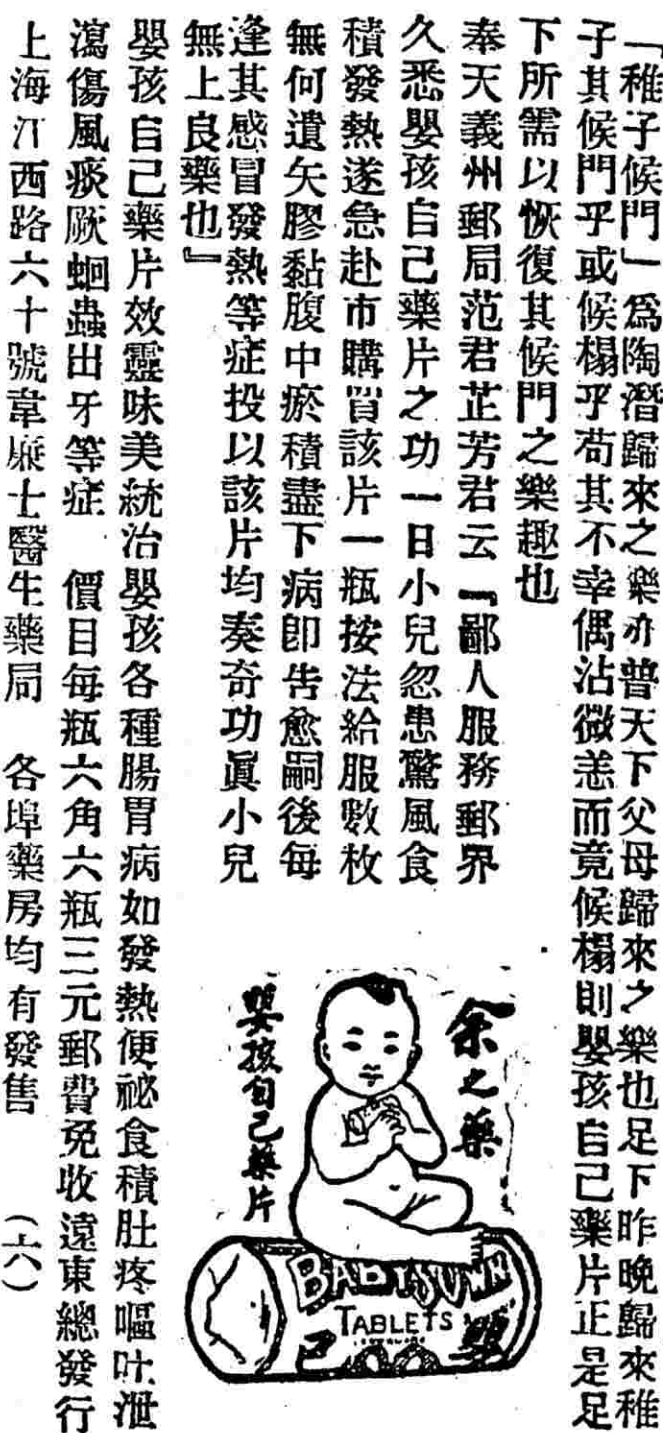 「稚子候門」爲陶潛歸來之樂亦普天下父母歸來之樂也足下昨晚歸來稚
子其候門乎或候榻乎苟其不幸偶沾微恙而竟候榻則嬰孩自己藥片正是足
下所需以恢復其候門之樂趣也
奉天義州郵局范君芷芳君云『鄙人服務郵界
久悉嬰孩自己藥片之功一日小兒忽患驚風食
積發熱遂急赴市購買該片一瓶按法給服數枚
無何遺矢膠黏腹中瘀積盡下病卽吿愈嗣後每
逢其感冒發熱等症投以該片均奏奇功眞小兒
無上良藥也』
嬰孩自己藥片效靈味美統治嬰孩各種腸胃病如發熱便祕食積肚疼嘔吐泄
瀉傷風痰厥蛔蟲出牙等症 價目每瓶六角六瓶三元郵費免收遠東總發行
上海江西路六十號韋廉士醫生藥局 各埠藥房均有發售 (六)
余之藥
嬰孩自己藥片
BABY'S OWN
TABLETS
嬰
己